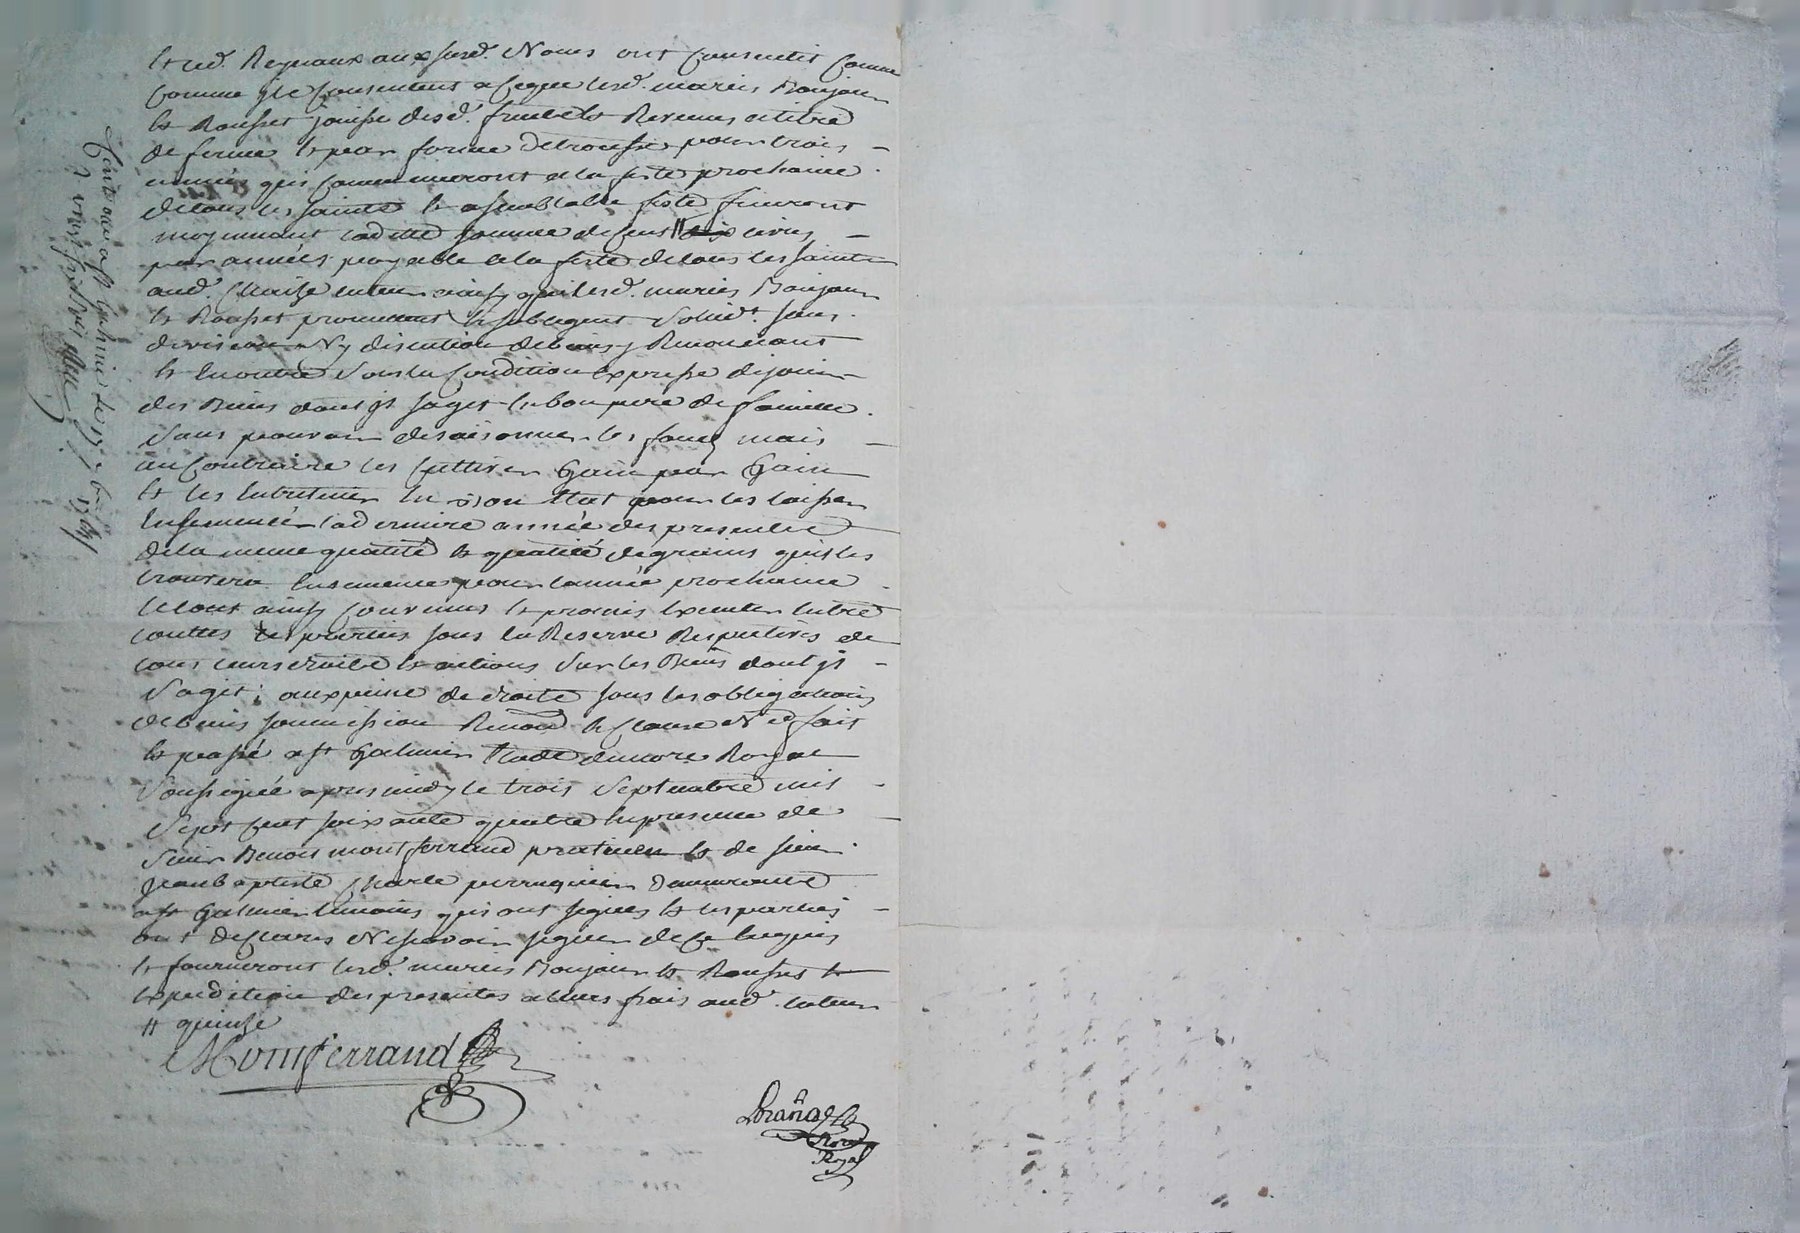 et led. Reynaux aux susd. Noms ont Consentis Comme
Comme ils Consentent a ceque lesd. mariés Bonjour
et Rousset jouisse desd. fruits et Revenus a titre
de ferme et par forme de trousse pour trois
années qui Commenceront a la feste prochaine
de tous les saints et a semblable feste finiront
moyennant laditte somme de Cent // livres
par années payable a la feste de tous les saints
aud. Chaize tuteur ainsy que lesd. mariés Bonjour
et Rousset promettent et s'obligent solid.t sans
division Ny discution de biens y Renonciant
et En outre sous la Condition Expresse de jouir
des Biens dont il sagit En bon pere de famille
sans pouvoir desaisonner les fonds mais
au Contraire les Cultiver Gain par Gain
et les Entretenir En Bon Etat pour les laisser
Ensemencés la derniere année des presentes
de la meme quantité et qualité de grains quil les
trouvera Ensemencé pour l'année prochaine
le tout ainsy Convenus et promis Executer Entre
touttes les parties sous la Reserve Respectives de
tous leurs droits et actions sur les Biens dont il
s'agit; aux peine de droits sous les obligations
de biens soumission Renon.on et Clause N ed fait
et passé a St Galmier Etude du no.re Royal
soussigné apres midy le trois septembre mil
sept Cent soixante quatre En presence de
sieur Benoit montferrand praticien et de sieur
Jean baptiste Charle perruquier demeurants
a St Galmier temoins qui ont signés et les parties
ont declarés Ne scavoir signer de ce Enquis
et fourniront lesd. mariés Bonjour et Rousset
Expedition des presentes a leurs frais aud. tuteur
// quinze
Montferrand
Royal
Controllé a St Galmier le 7bre 1764